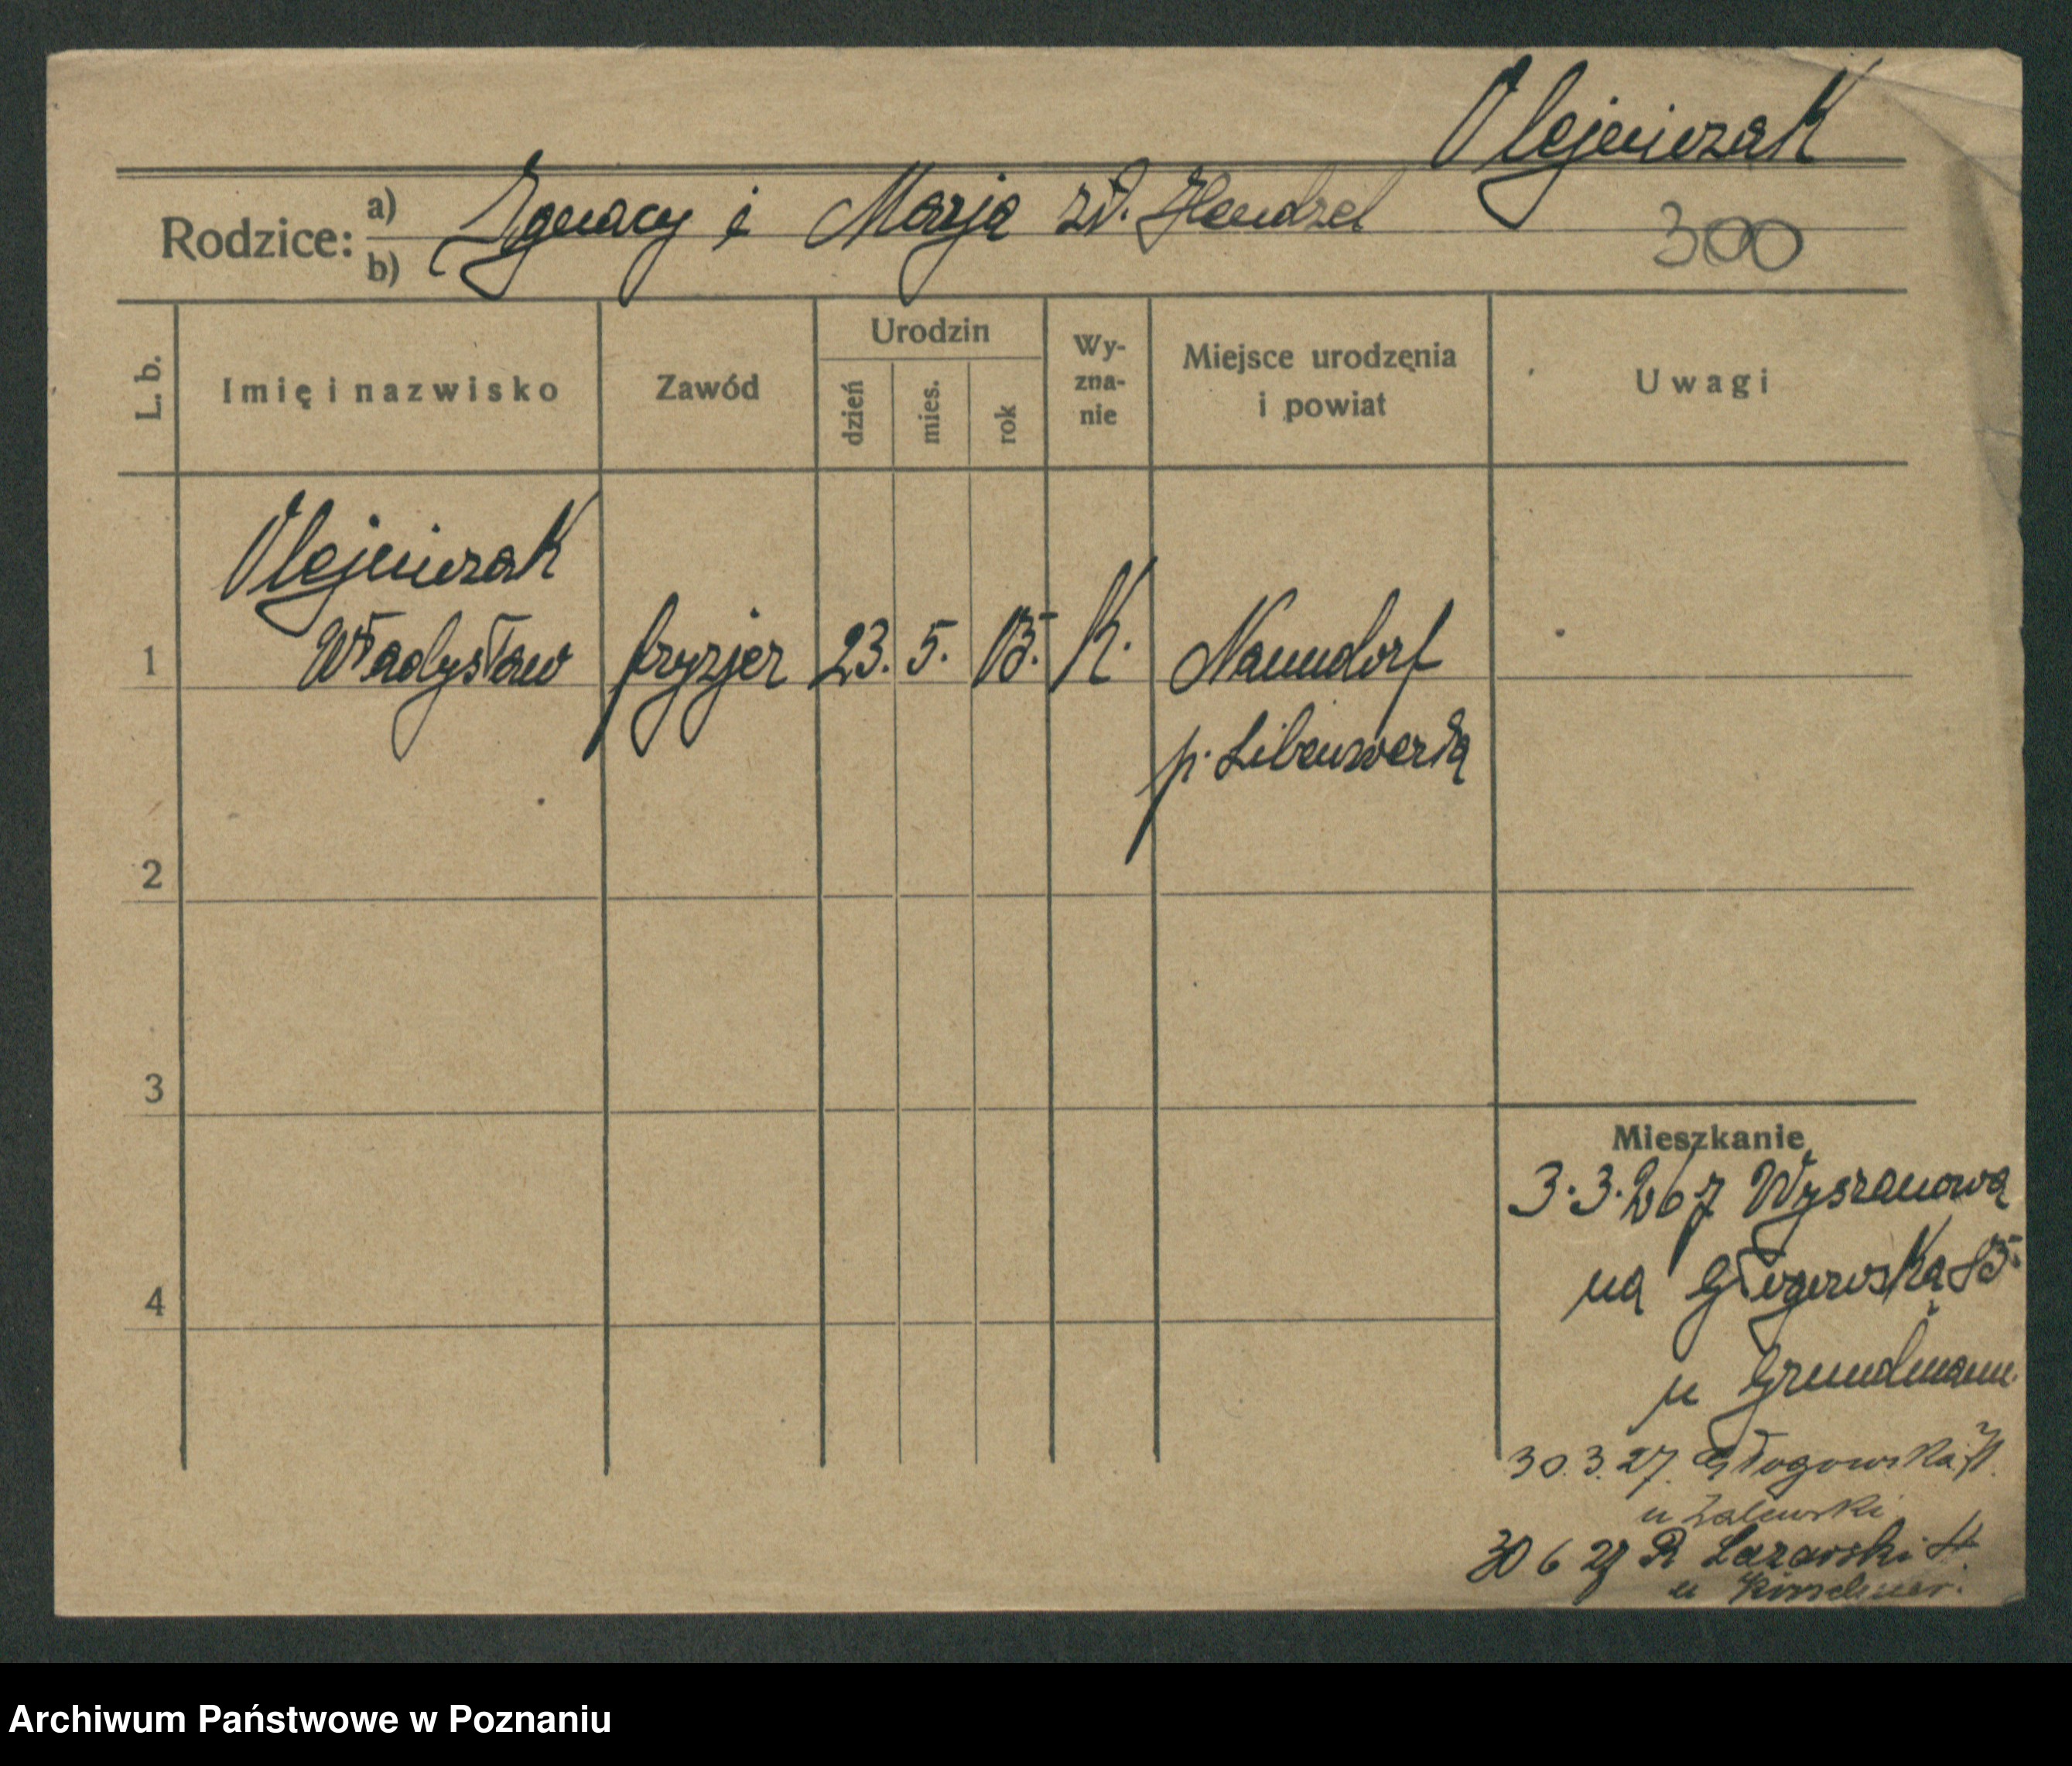 Olejniczak
Rodzice: a) b) Ignacy i Marja zd. Hendzel
300
L. b.
Imię i nazwisko
Zawód
Urodzin
dzień
mies.
rok
Wy-
zna-
nie
Miejsce urodzenia
i powiat
Uwagi
Olejniczak
1 Władysław fryzjer 23. 5. K. Naundorf
p. Libenwerda
2
3
4
Mieszkanie
3.3. z Wyszanowa
na Głogowska
u Grundmann.
30.3.27. Głogowska
u Zalewski
30 6 27 R Lazarski
u
Archiwum Państwowe w Poznaniu